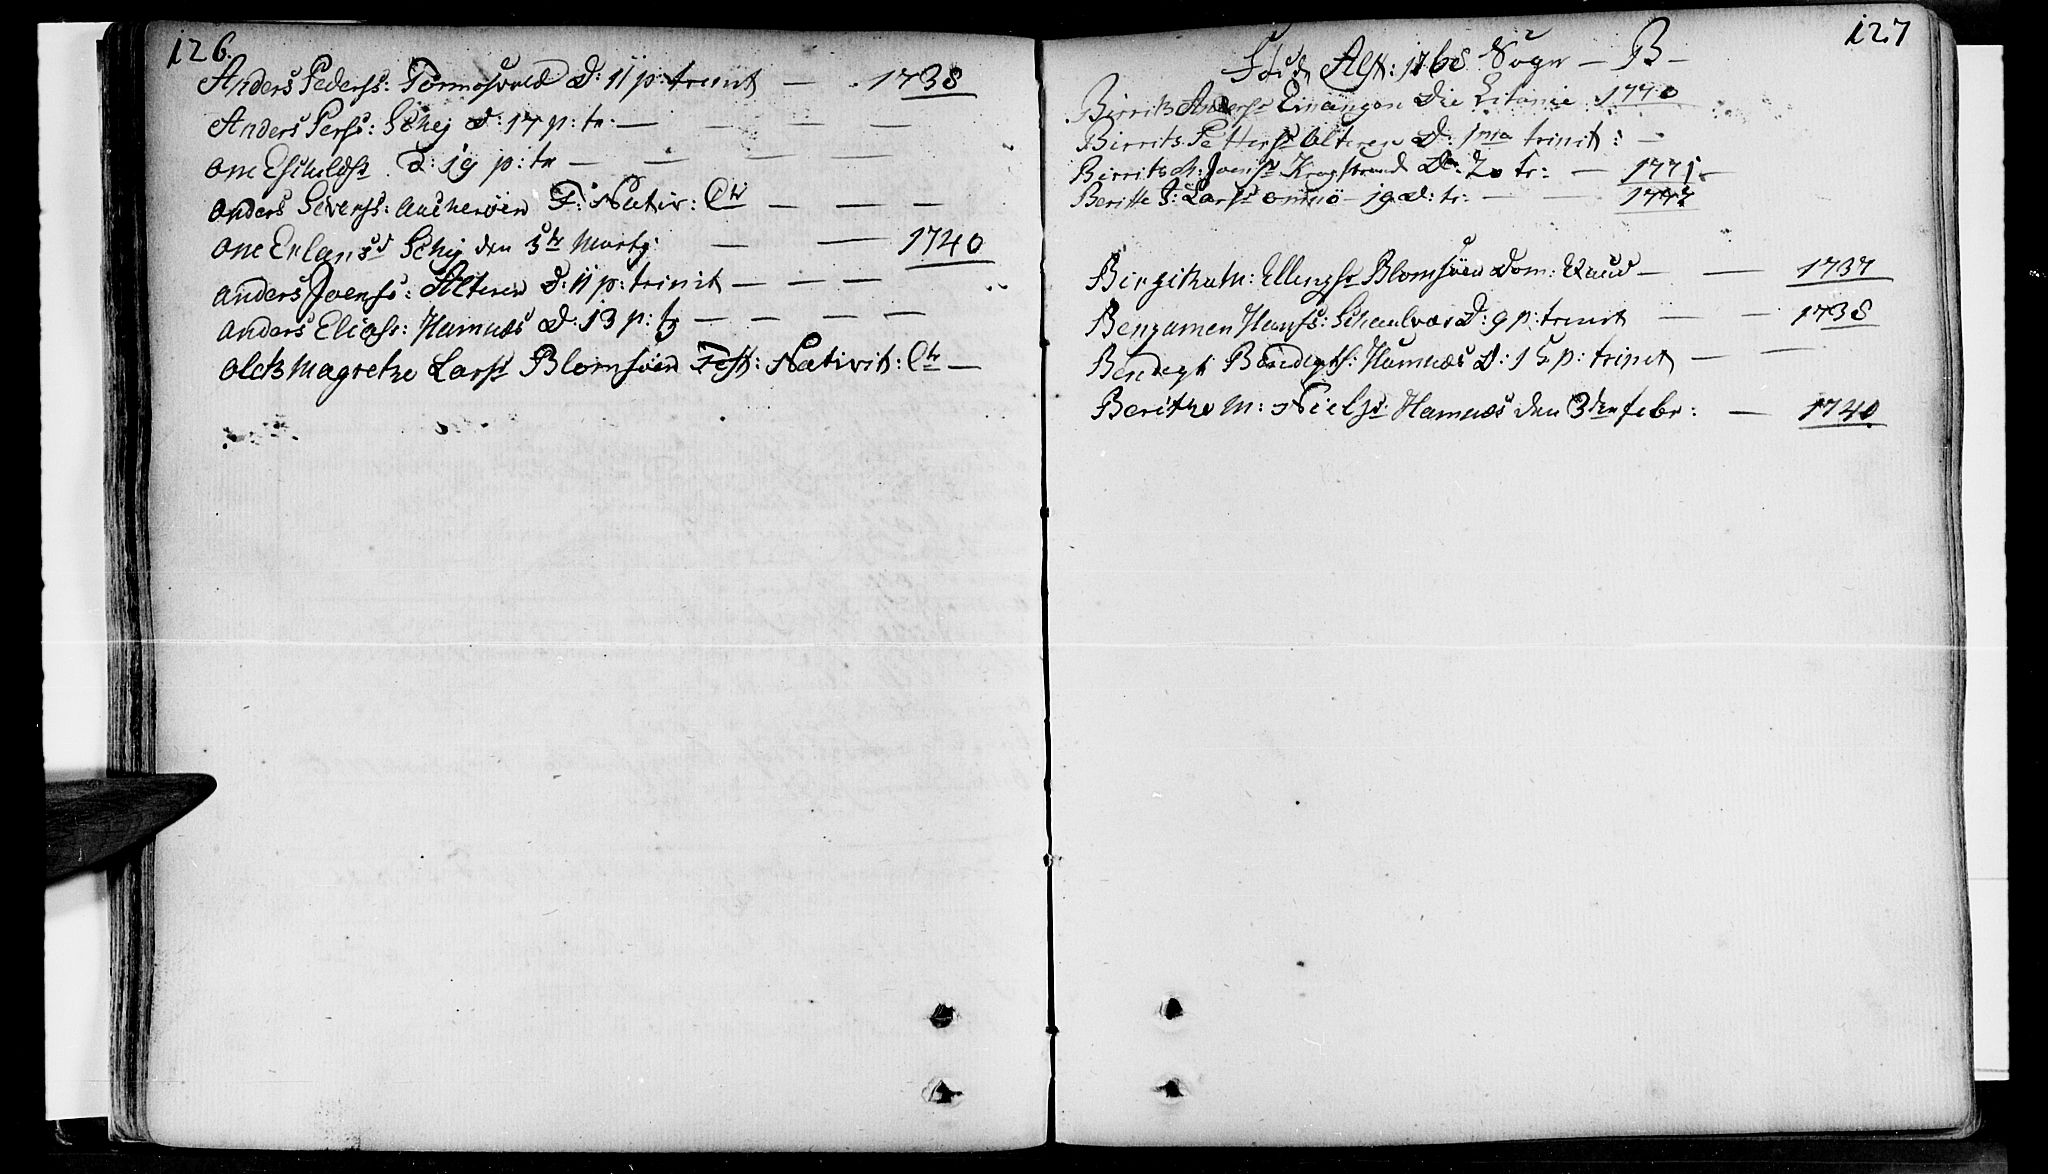 126.
Anders Peders: Tormosvold d: 11 p: trinit — . 1738
Anders Pers: Schej d: 17 p: tr: — — — —
one Eschildsr d: 19 p: tr — — — —
anders Sivers: auscheröen F: Nativ: Ch — — —
one Erlansd Schej den 5te Marty: — — 1740
anders Joens: Alteren d: 11 p: trinit — — —
anders Elias: Hamnæs d: 13 p: tr — — — —
olck Magrethe Larsr Blomsöen Fest: Nativit: Ch —
127
Alst: 1768 Sogn — B —
Birrith Anders Die Litanie 1770
Birrits Petters Alteren d: 1ma trinit: —
Birrits Joens Krogstrand D: 20 tr: — 1771 —
Beritte Lars 19 d: tr: — — 1772
Birgithe Ellings Blomsöen Dom: — — 1737
Bengamen Hans: Schaalvær d: 9 p: trinit — — 1738
Bendegt Bendegts: Hamnæs d: 15 p: trinit — —
Berithe M: Niels Hamnæs den 3den febr: — 1740